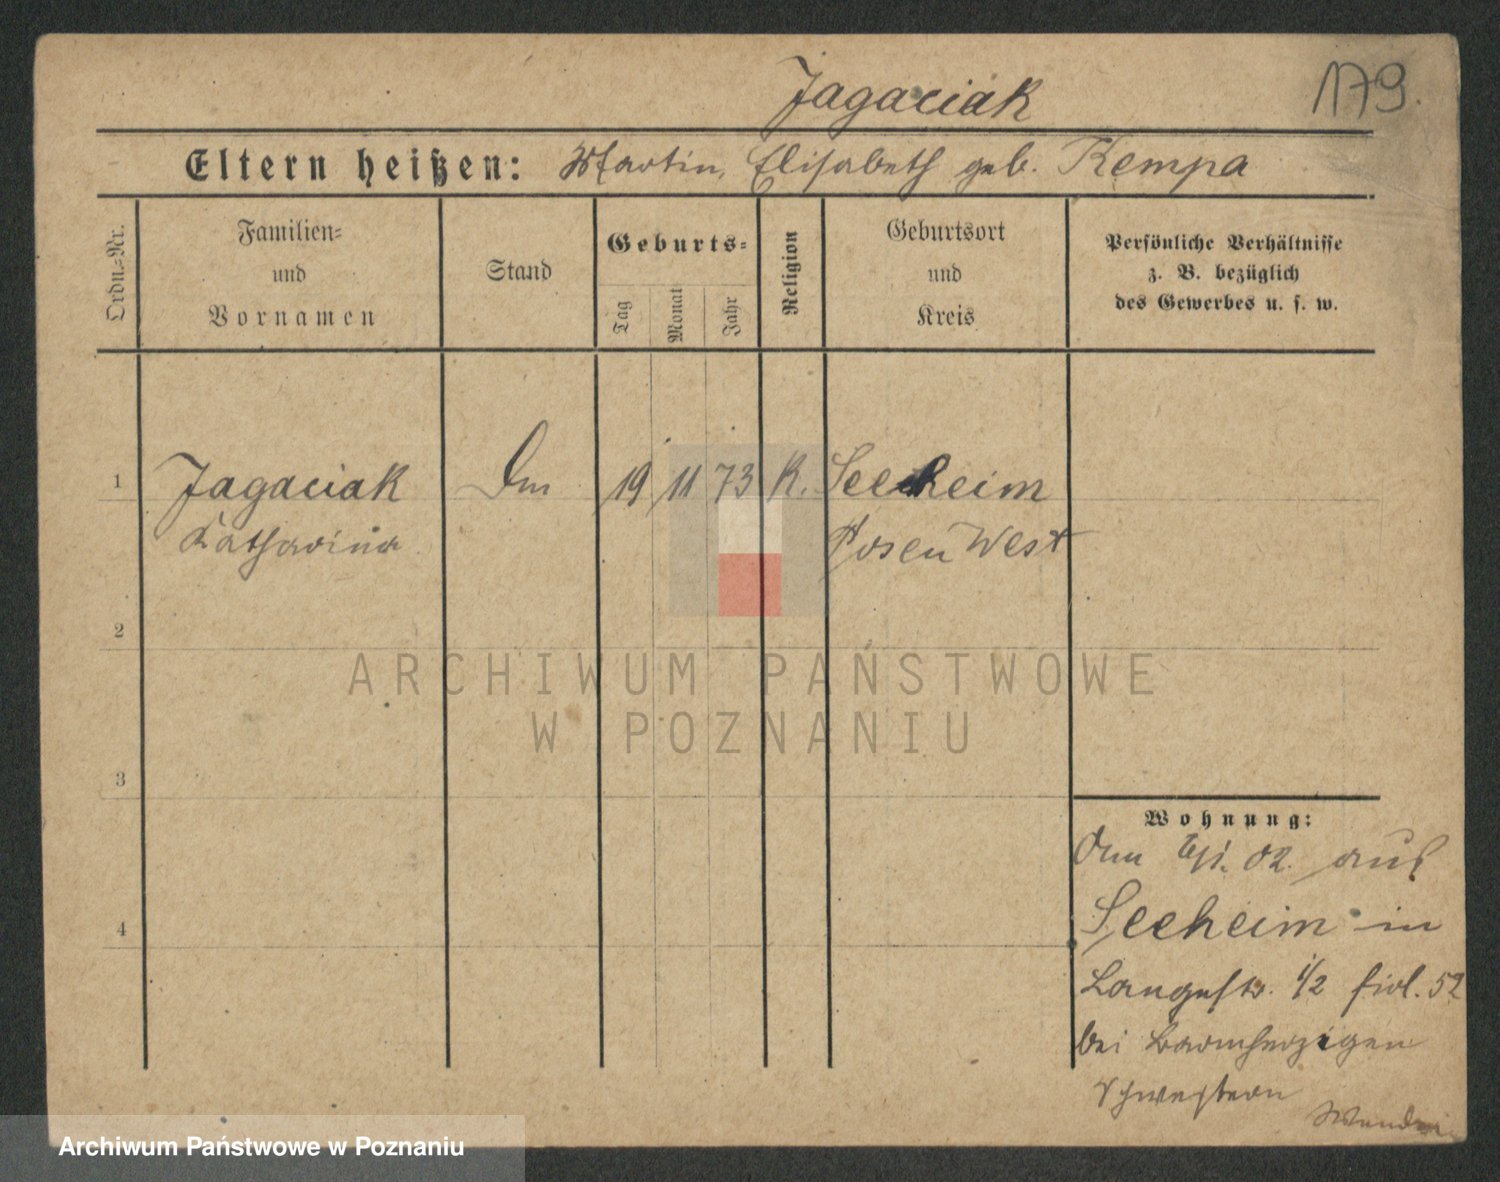 Jagaciak
179.
Eltern heißen: Martin, Elisabeth geb. Kempa
Ordn.=Nr.
Familien=
und
Vornamen
Stand
Geburts=
Tag
Monat
Jahr
Religion
Geburtsort
und
Kreis
Persönliche Verhältnisse
z. B. bezüglich
des Gewerbes u. s. w.
1 Jagaciak 19 11 73 K. Seeheim
Katharina Posen West
2
3
4
ARCHIWUM PAŃSTWOWE
W POZNANIU
Wohnung:
02. aus
Seeheim in
Langestr. 1/2 fidl. 52
bei Barmherzigen
Schwestern
Archiwum Państwowe w Poznaniu